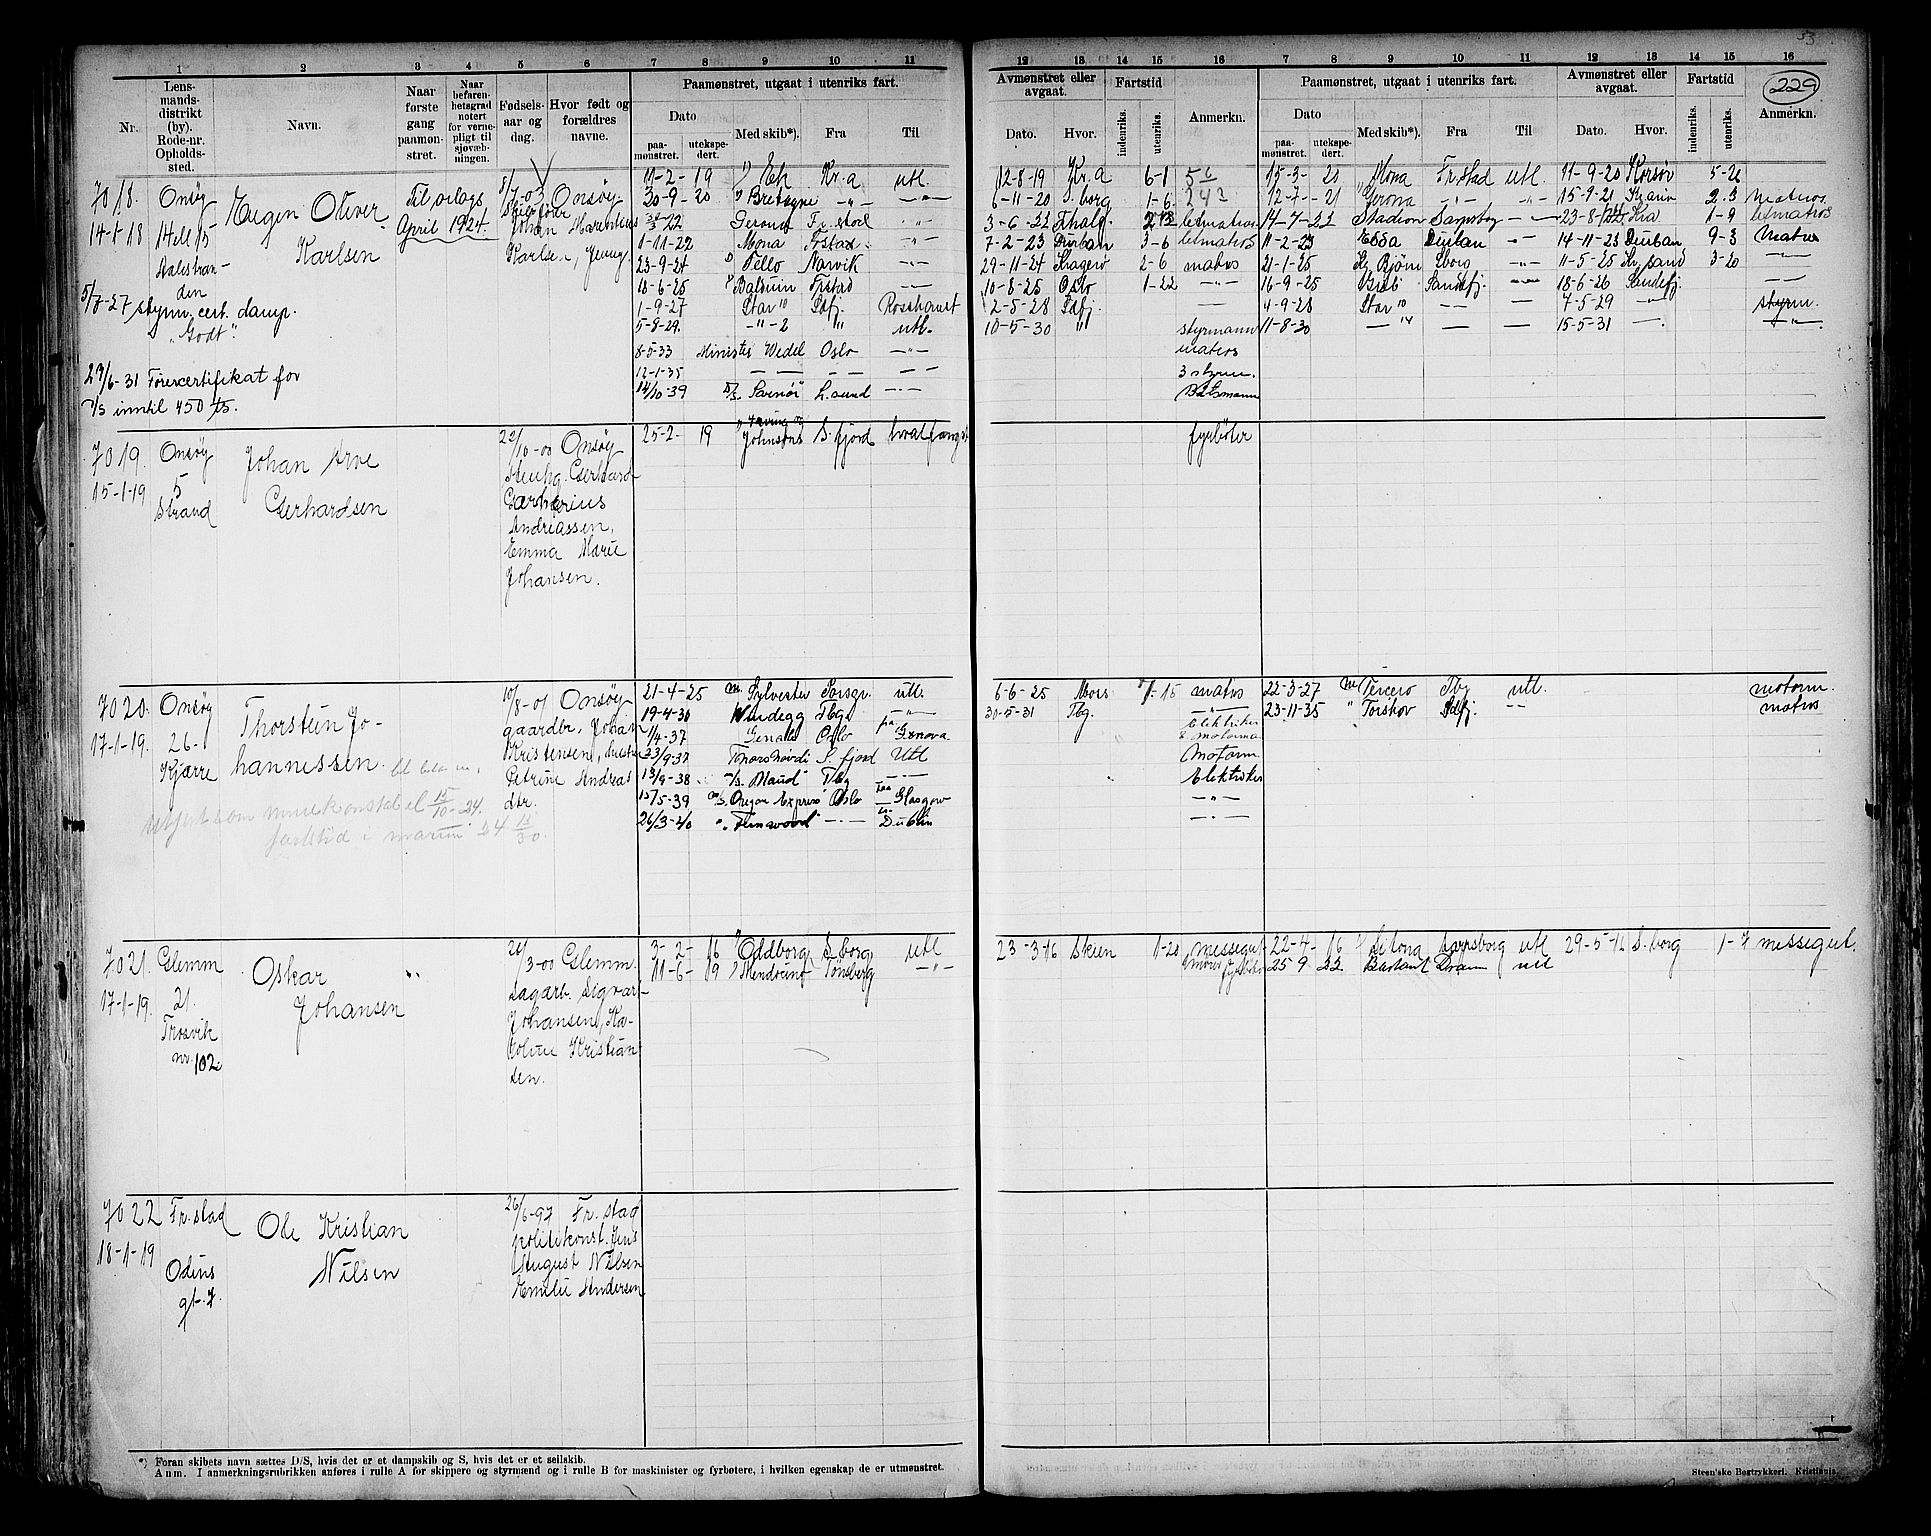 53
229
1 2 3 4 5 6 7 8 9 10 11
Nr.
Lens-
mands-
distrikt
(by).
Rode-nr.
Opholds-
sted.
Navn.
Naar
første
gang
paamøn-
stret.
Naar
befaren-
hetsgrad
notert
for verne-
pligt til
sjøvæb-
ningen.
Fødsels-
aar og
dag.
Hvor født og
forældres
navne.
Paamønstret, utgaat i utenriks fart.
Dato
paa-
mønstret.
utekspe-
dert.
Med skib*).
Fra
Til
12 13 14 15 16 7 8 9 10 11 12 13 14 15 16
Avmønstret eller
avgaat.
Dato. Hvor.
Fartstid
indenriks.
utenriks.
Anmerkn.
Paamønstret, utgaat i utenriks fart.
Dato
paa-
mønstret.
utekspe-
dert.
Med skib*).
Fra
Til
Avmønstret eller
avgaat.
Dato. Hvor.
Fartstid
indenriks.
utenriks.
Anmerkn.
7018.
14-1-18
Onsøy
14 ell 15
Aalestran-
den
Eugen Oliver
Karlsen
Til oslags
April 1924.
8/7-03 Onsøy
Johan
Karlsen, Jenny
5/7-27 styrm. cert. damp.
"Godt".
29/6-31 Førercertifikat for
inntil 450 ts.
11-2-19 " Ek Kr.a utl.
30-9-20 " Bretagne -"- -"-
22 Gerona Fr.stad -"-
1-11-22 Mona Frstad -"-
23-9-24 " Pello Narvik -"-
10-6-25 " Balduin Frstad -"-
1-9-27 Star 10 Sdfj. Rosshavet
5-8-29. -"- 2 " utl.
8-5-33 Minister Wedel Oslo -"-
12-1-35 — — — — —
14/10-39 D/S. L.sund -"-
12-8-19 Kr.a 6-1
6-11-20 S.borg 1-6 24
3-6-22 Fhald. letmatros
7-2-23 Durban 3-6 letmatros
29-11-24 Kragerø 2-6 matros
10-8-25 Oslo 1-22 -"-
2-5-28 Sdfj.
10-5-30 " styrmann
matros
3 styrm.
Båtsmann
15-3-20 Mona Fr.stad utl. 11-9-20 Korsør 5-26
12-7-21 Gerona -"- -"- 15-9-21 2.3 matros
14-7-22 Stadion Sarpsborg -"- 23-8-22 Kra 1-9 letmatros
11-2-23 Edda Durban -"- 14-11-23 Durban 9-3 Matros
21-1-25 Bjørn Sborg -"- 11-5-25 Kr.sand 3-20 -"-
16-9-25 Sandefj. -"- 18-6-26 Sandefj. -"-
4-9-28 Star 10 — — 7-5-29 -"- styrm.
11-8-30 — 14 — — 15-5-31 -"- -"-
7019.
15-1-19
Onsøy
5
Strand
Johan Arve
Gerhardsen
22/10-00 Onsøy
Stenhg. Gerhard
Andriassen,
Emma Marie
Johansen.
25-2-19 Irving Johnsons S.fjord hvalfangst
fyrbøter
7020.
17-1-19.
Onsøy
26-
Kjærre
Thorstein Jo-
hannessen.
10/8-01 Onsøy
gaardbr. Johan
Kristensen,
Petrine Andreas
dtr.
Utført som minekonstabel 15/10-24.
fartstid i marinen 24 12/30.
21-4-25 m. Sylvester Porsgr. utl.
19-4-30 Vindegg Tbg. -"-
1/4-37 Genale Oslo på Genova
23/9-37 Thorshøvdi S.fjord Utl
13/9-38 M/S. Maud Tbg -"-
15/5-39 m/s. Oregon Express Oslo Glasgow
26/3-40 " Fernwood -"- Dublin
6-6-25 Moss 1-15 matros
30-5-31 Tbg. -"-
Elektriker
& motorma
Motorm
Elektriker
-"-
-"-
22-3-27 M Tercero Tbg utl. motorm.
23-11-35 " Torskov Sdfj. -- matros
7021.
17-1-19.
Glemm
21.
Trosvik
nr. 102.
Oskar "
Johansen
21/3-00 Glemm.
Sagarb. Sigvart
Johansen, Ka-
roline Kristian-
sen.
3-2-16 " Oddborg S.borg utl
11-6-19 " Mendocino Tønsberg -"-
23-3-16 Skien 1-20 messegut
22-4-16 Sarpsborg utl 29-5-16 S.borg 1-7 messegut.
25 9 22 Dram utl
7022
18-1-19
Fr.stad
Odins
gt. 7.
Ole Kristian
Nilsen
26/6-97 Fr.stad
politikonst. Jens
August Nilsen
Emelie Andersen
*) Foran skibets navn sættes D/S, hvis det er et dampskib og S, hvis det er et seilskib.
Anm. I anmerkningsrubrikken anføres i rulle A for skippere og styrmænd og i rulle B for maskinister og fyrbøtere, i hvilken egenskap de er utmønstret.
Steen'ske Bogtrykkeri. Kristiania.